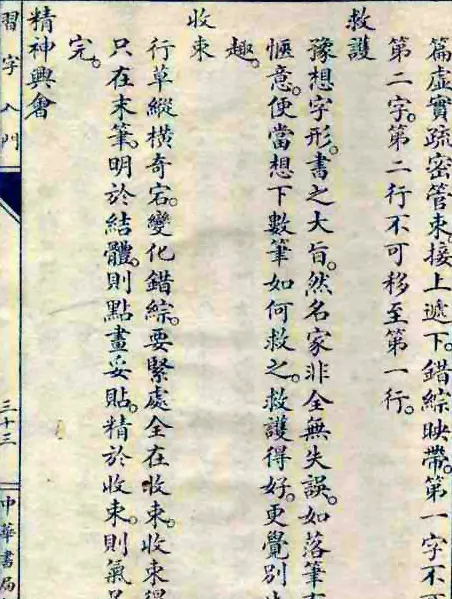 篇虛實疏密管束。接上遞下。錯綜映帶。第一字不可
第二字。第二行不可移至第一行。
救護
豫想字形。書之大旨。然名家非全無失誤。如落筆
愜意。便當想下數筆如何救之。救護得好。更覺別
趣。
收束
行草縱橫奇宕。變化錯綜。要緊處全在收束。收束得
只在末筆。明於結體。則點畫妥貼。精於收束。則氣
完。
精神興會
習字入門
三十三
中華書局